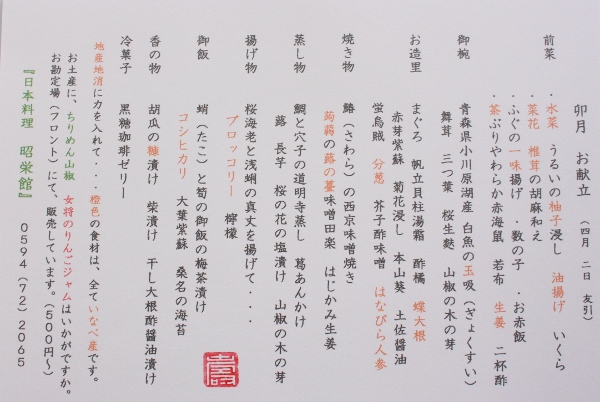 卯月　お献立　（四月　二日　友引）
前菜　・水菜　うるいの柚子浸し　油揚げ　いくら
・菜花　椎茸の胡麻和え
・ふぐの一味揚げ　・数の子　・お赤飯
・茶ぶりやわらか赤海鼠　若布　生姜　二杯酢
御椀　青森県小川原湖産　白魚の玉吸（ぎょくすい）
舞茸　三つ葉　桜生麩　山椒の木の芽
お造里　まぐろ　帆立貝柱湯霜　酢橘　蝶大根
赤芽紫蘇　菊花浸し　本山葵　土佐醤油
蛍烏賊　分葱　芥子酢味噌　はなびら人参
焼き物　鰆（さわら）の西京味噌焼き
蒟蒻の蕗の薹味噌田楽　はじかみ生姜
蒸し物　鯛と穴子の道明寺蒸し　葛あんかけ
蕗　長芋　桜の花の塩漬け　山椒の木の芽
揚げ物　桜海老と浅蜊の真丈を揚げて・・・
ブロッコリー　檸檬
御飯　蛸（たこ）と筍の御飯の梅茶漬け
コシヒカリ　大葉紫蘇　桑名の海苔
香の物　胡瓜の糠漬け　柴漬け　干し大根酢醤油漬け
冷菓子　黒糖珈琲ゼリー
地産地消に力を入れて・・・橙色の食材は、全ていなべ産です。
お土産に、ちりめん山椒　女将のりんごジャムはいかがですか。
お勘定場（フロント）にて、販売しています。（５００円〜）
『日本料理　昭栄館』　０５９４（７２）２０６５